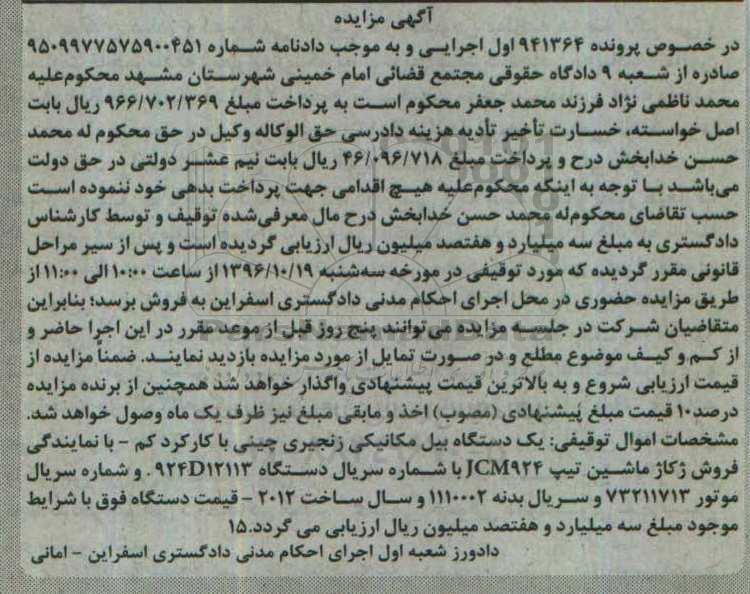 آگهی مزایده
در خصوص پرونده ۹۴۱۳۶۴ اول اجرایی و به موجب دادنامه شماره ۹۵۰۹۹۷۷۵۷۵۹۰۰۴۵۱
صادره از شعبه ۹ دادگاه حقوقی مجتمع قضائی امام خمینی شهرستان مشهد محکوم‌علیه
محمد ناظمی نژاد فرزند محمد جعفر محکوم است به پرداخت مبلغ ۹۶۶/۷۰۲/۳۶۹ ریال بابت
اصل خواسته، خسارت تأخیر تأدیه هزینه دادرسی حق الوکاله وکیل در حق محکوم له محمد
حسن خدابخش درح و پرداخت مبلغ ۴۶/۰۹۶/۷۱۸ ریال بابت نیم عشر دولتی در حق دولت
می‌باشد با توجه به اینکه محکوم‌علیه هیچ اقدامی جهت پرداخت بدهی خود ننموده است
حسب تقاضای محکوم‌له محمد حسن خدابخش درح مال معرفی‌شده توقیف و توسط کارشناس
دادگستری به مبلغ سه میلیارد و هفتصد میلیون ریال ارزیابی گردیده است و پس از سیر مراحل
قانونی مقرر گردیده که مورد توقیفی در مورخه سه‌شنبه ۱۳۹۶/۱۰/۱۹ از ساعت ۱۰:۰۰ الی ۱۱:۰۰ از
طریق مزایده حضوری در محل اجرای احکام مدنی دادگستری اسفراین به فروش برسد؛ بنابراین
متقاضیان شرکت در جلسه مزایده می‌توانند پنج روز قبل از موعد مقرر در این اجرا حاضر و
از کم و کیف موضوع مطلع و در صورت تمایل از مورد مزایده بازدید نمایند. ضمناً مزایده از
قیمت ارزیابی شروع و به بالاترین قیمت پیشنهادی واگذار خواهد شد همچنین از برنده مزایده
درصد۱۰ قیمت مبلغ پیشنهادی (مصوب) اخذ و مابقی مبلغ نیز ظرف یک ماه وصول خواهد شد.
مشخصات اموال توقیفی: یک دستگاه بیل مکانیکی زنجیری چینی با کارکرد کم - با نمایندگی
فروش ژکاژ ماشین تیپ JCM۹۲۴ با شماره سریال دستگاه ۹۲۴D۱۲۱۱۳ . و شماره سریال
موتور ۷۳۲۱۱۷۱۳ و سریال بدنه ۱۱۱۰۰۰۲ و سال ساخت ۲۰۱۲ - قیمت دستگاه فوق با شرایط
موجود مبلغ سه میلیارد و هفتصد میلیون ریال ارزیابی می گردد.۱۵
دادورز شعبه اول اجرای احکام مدنی دادگستری اسفراین - امانی